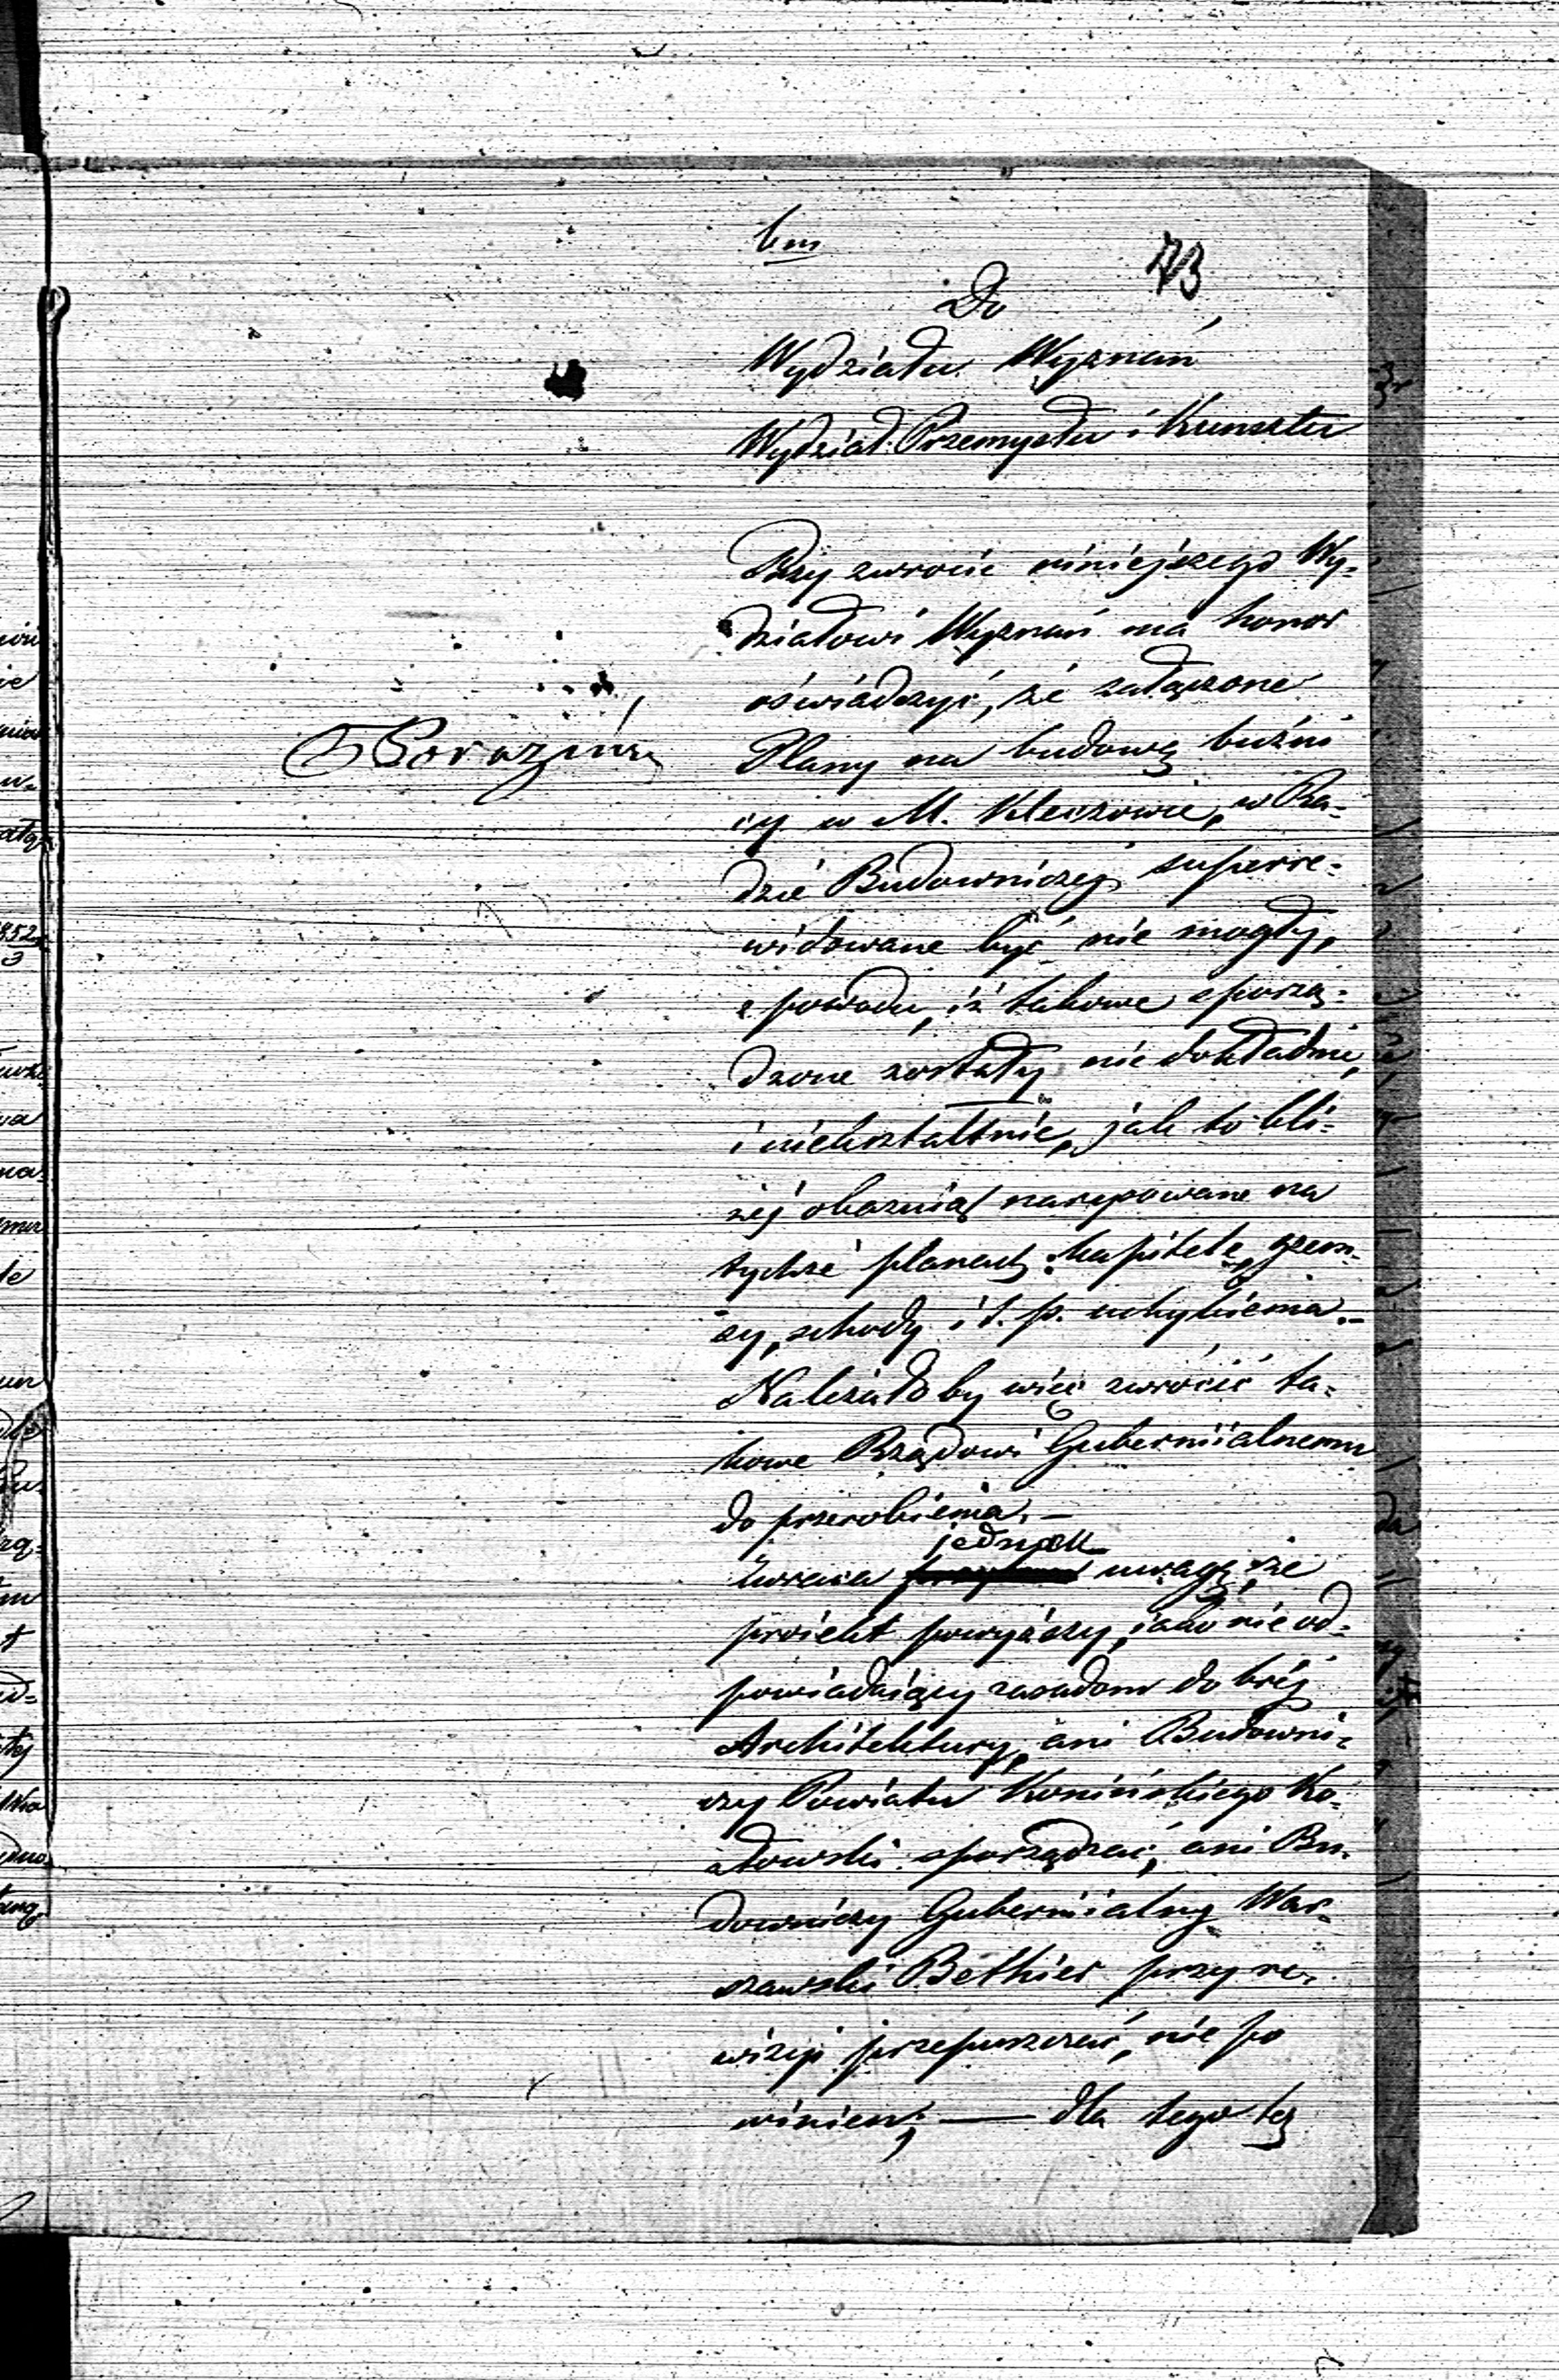 73
Do
Wydziału Wyznań
Wydział Przemysłu i Kunsztu
Przy zwrocie niniejszego Wy-
działowi Wyznań ma honor
oświadczyć, że załączone
Plany na budowę bużni
cy w M. Kleczowie, w Ra-
dzie Budowniczej superre-
widowane być nie mogły,
z powodu, iż takowe sporzą-
dzone zostały nie dokładnie,
i niekształtnie, jak to bli-
żej okazuią narysowane na
tychże planach kapitele, gzem-
sy, schody i t. p. uchybienia.-
Należałoby więc zwrócić ta-
kowe Rządowi Gubernialnemu
do przerobienia. -
jednak
Zwraca uwagę, że
proiekt powyższy, iako nie od-
powiadaiący zasadom dobréj
Architektury, ani Budowni-
czy Powiatu Konińskiego Ko-
złowski sporządzać, ani Bu-
downiczy Gubernialny War-
szawski Bethier przy re-
wizyi przepuszczać, nie po
winien; — dla tego też